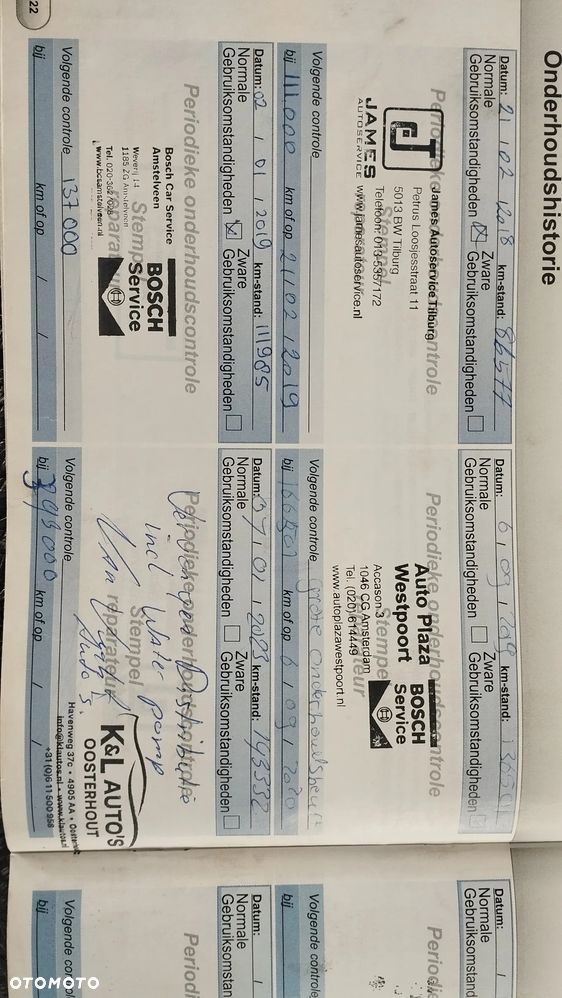 Onderhoudshistorie
Datum: 21 / 02 / 2018 km-stand: 86577
Normale Zware
Gebruiksomstandigheden Gebruiksomstandigheden
Periodieke onderhoudscontrole
Stempel
James Autoservice Tilburg
Petrus Loosjesstraat 11
5013 BW Tilburg
Telefoon: 013-5357172
www.jamesautoservice.nl
JAMES
AUTOSERVICE
Volgende controle
bij 111.000 km of op 21 / 02 / 2019
Datum: 02 / 01 / 2019 km-stand: 111985
Normale Zware
Gebruiksomstandigheden Gebruiksomstandigheden
Periodieke onderhoudscontrole
Stempel
Bosch Car Service
Amstelveen
Weverij 14
1185 ZG Amstelveen
BOSCH
Service
Volgende controle
bij 137000 km of op / /
22
Datum: 6 / 09 / 2019 km-stand:
Normale Zware
Gebruiksomstandigheden Gebruiksomstandigheden
Periodieke onderhoudscontrole
Stempel
Auto Plaza
Westpoort
BOSCH
Service
Accason 3
1046 CG Amsterdam
Tel. (020) 614449
www.autoplazawestpoort.nl
Volgende controle grote onderhoudsbeurt
bij 166501 km of op 6 / 09 / 2020
Datum: 07 / 01 / 2023 km-stand: 193332
Normale Zware
Gebruiksomstandigheden Gebruiksomstandigheden
Periodieke onderhoudscontrole
Distributie
incl Water pomp
Stempel
reparateur
Van
K&L AUTO'S
OOSTERHOUT
Havenweg 37c • 4905 AA • Oosterhout
info@klautos.nl • www.klautos.nl
+31(0)611500958
Volgende controle
bij 393000 km of op / /
Datum: /
Normale
Gebruiksomstan
Periodi
Volgende controle
bij
Datum: /
Normale
Gebruiksomstan
Periodi
Volgende contro
bij
OTOMOTO